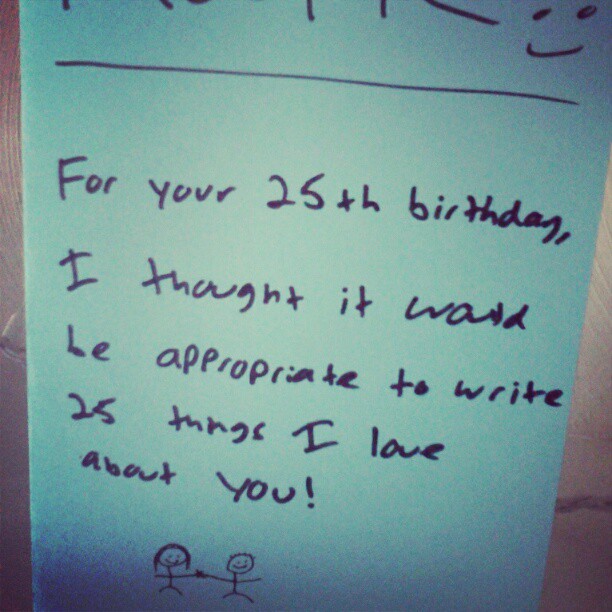 For your 25th birthday,
I thought it would
be appropriate to write
25 things I love
about you!